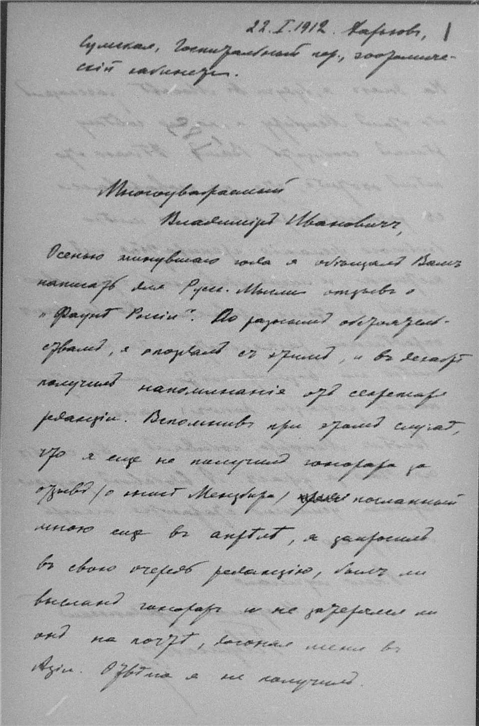 22.I.1912. Харьков,
1
Сумская, Госпитальный пер., зоотомиче-
скій кабинетъ.
Многоуважаемый
Владиміръ Ивановичъ,
Осенью минувшаго года я обѣщалъ Вамъ
написать для Русс. Мысли отзывъ о
"Фаунѣ Россіи". По разнымъ обстоятель-
ствамъ, я опоздалъ съ этимъ, и въ декабрѣ
получилъ напоминаніе отъ секретаря
редакціи. Вспомнивъ при этомъ случаѣ,
что я еще не получилъ гонорара за
отзывъ /о книгѣ Мензбира/ посланный
мною еще въ апрѣлѣ, я запросилъ
въ свою очередь редакцію, былъ ли
высланъ гонораръ и не затерялся ли
онъ на почтѣ, догоняя меня въ
Азіи. Отвѣта я не получилъ.